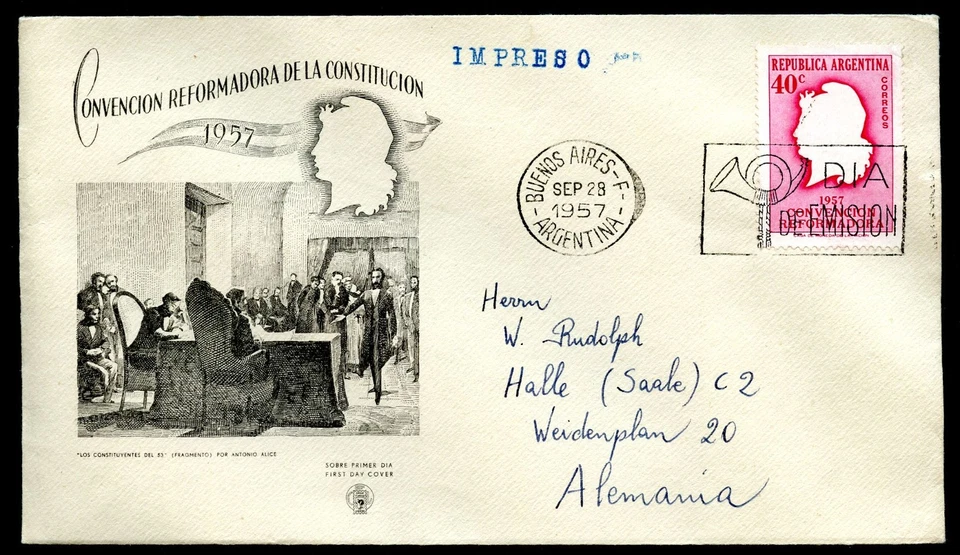 IMPRESO
CONVENCION REFORMADORA DE LA CONSTITUCION
1957
REPUBLICA ARGENTINA
40c
CORREOS
1957
CONVENCION
REFORMADORA
BUENOS AIRES-F-
SEP 28
1957
ARGENTINA
DIA
DE EMISION
Herrn
W. Rudolph
Halle (Saale) C 2
Weidenplan 20
Alemania
"LOS CONSTITUYENTES DEL 53" (FRAGMENTO) POR ANTONIO ALICE
SOBRE PRIMER DIA
FIRST DAY COVER